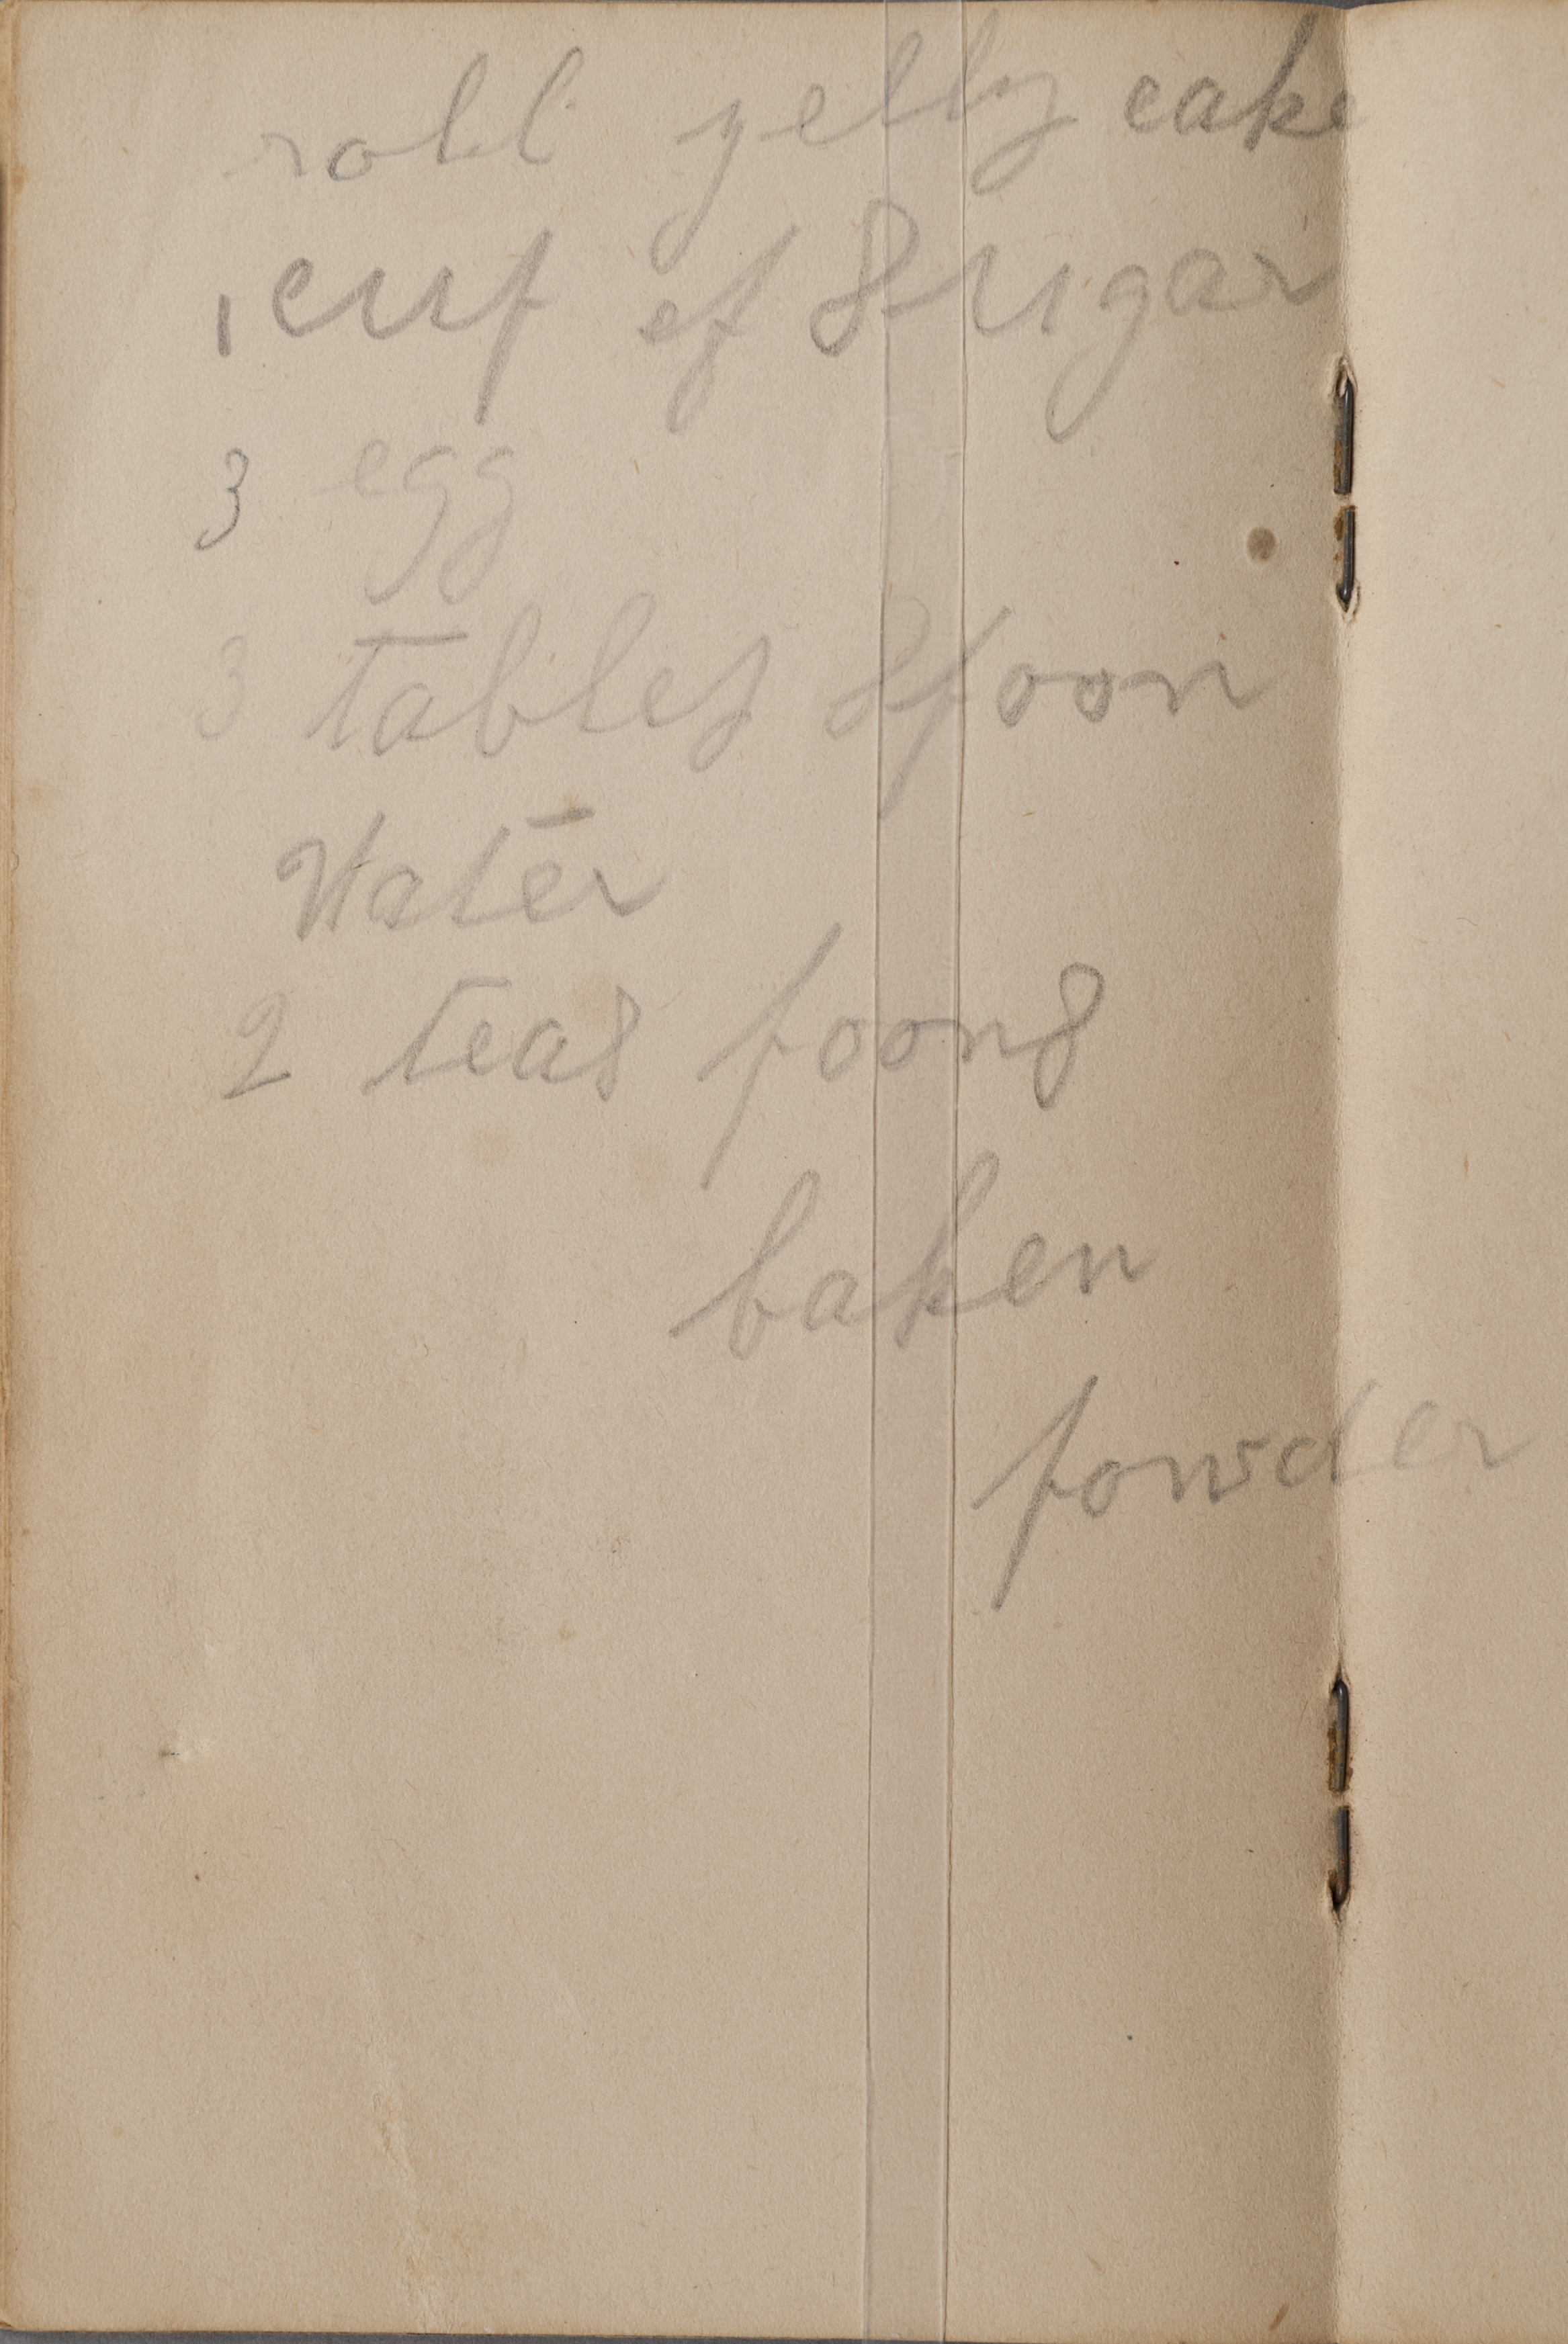 roll yelly cake
1 cup of Sugar
3 egg
3 tables spoon
Water
2 teas poons
baken
powder